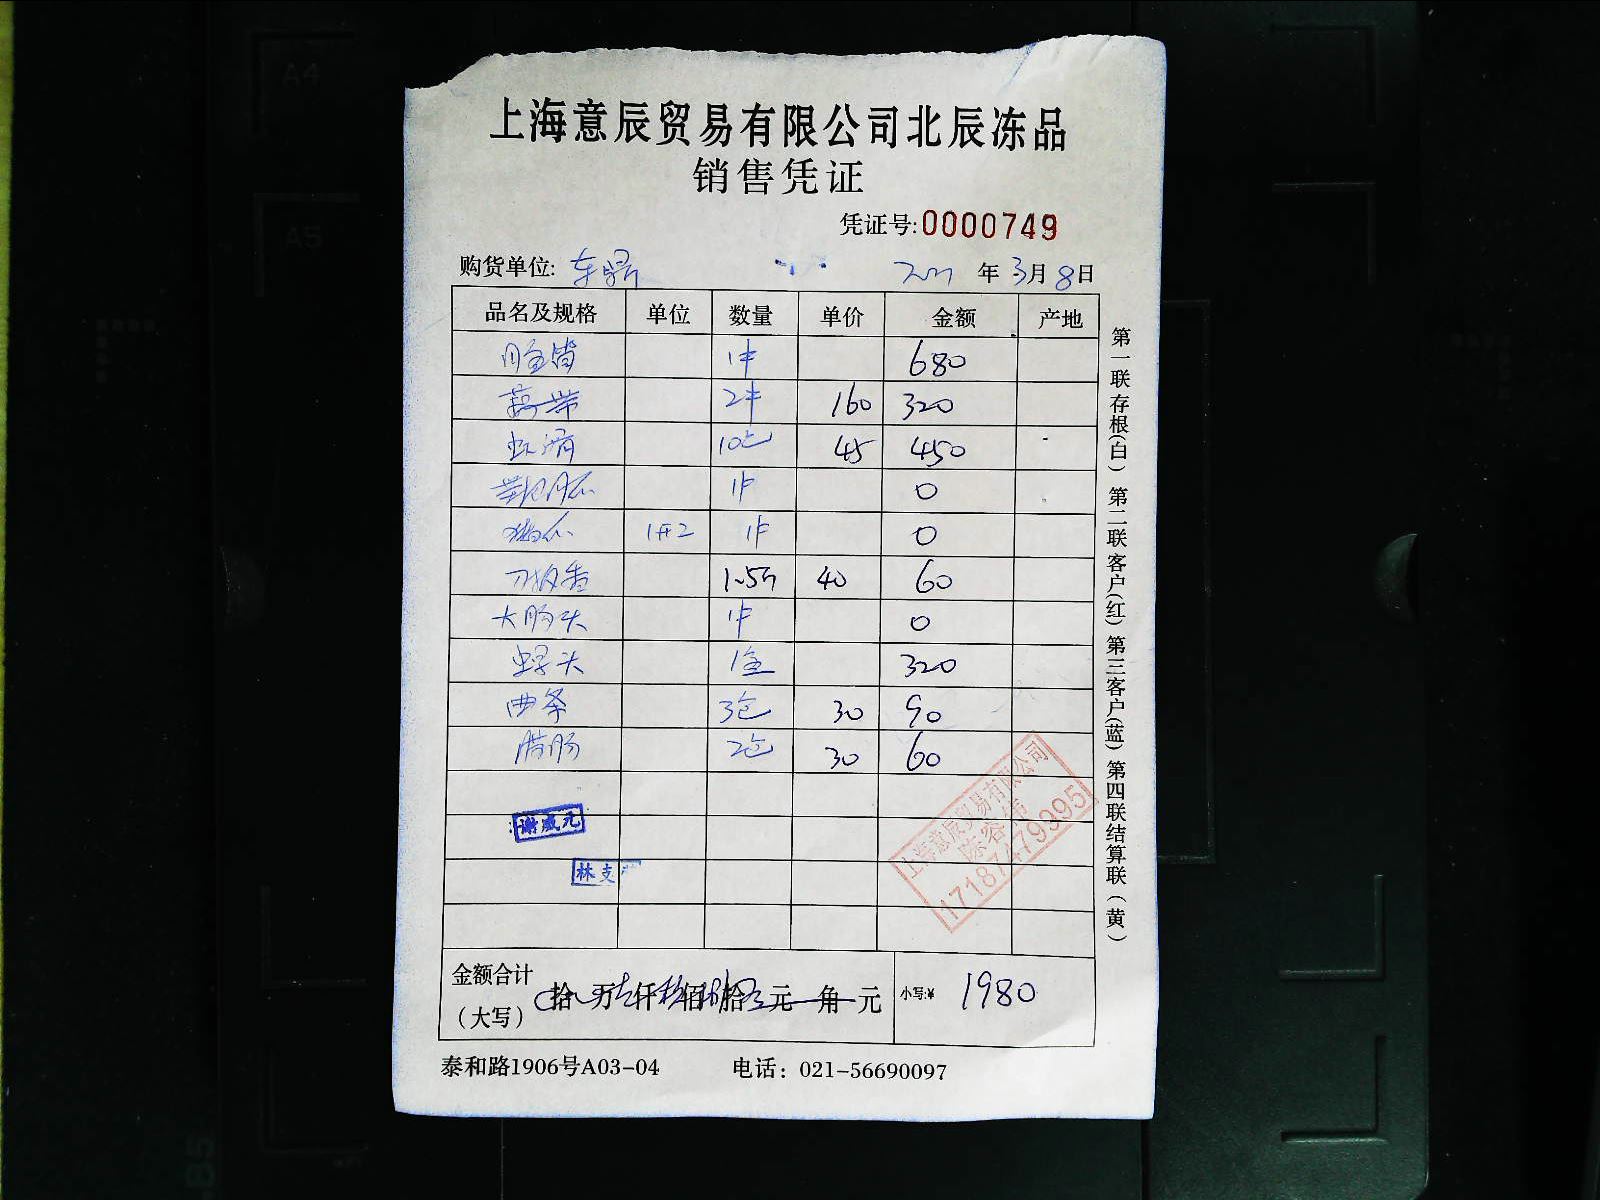 上海意辰贸易有限公司北辰冻品
销售凭证
凭证号:0000749
购货单位: 年3月8日
品名及规格 单位 数量 单价 金额 产地
1件 680
2件 160 320
10包 45 450
1件 0
1件 0
40 60
大肠头 1件 0
螺头 320
3包 30 90
腊肠 2包 30 60
谢成元
林支
上海意辰贸易有限公司
17187479995
金额合计
(大写)
拾 万 仟 佰 拾 元 角 元
小写:¥ 1980
泰和路1906号A03-04 电话: 021-56690097
第一联存根(白) 第二联客户(红) 第三客户(蓝) 第四联结算联(黄)
A4
A5